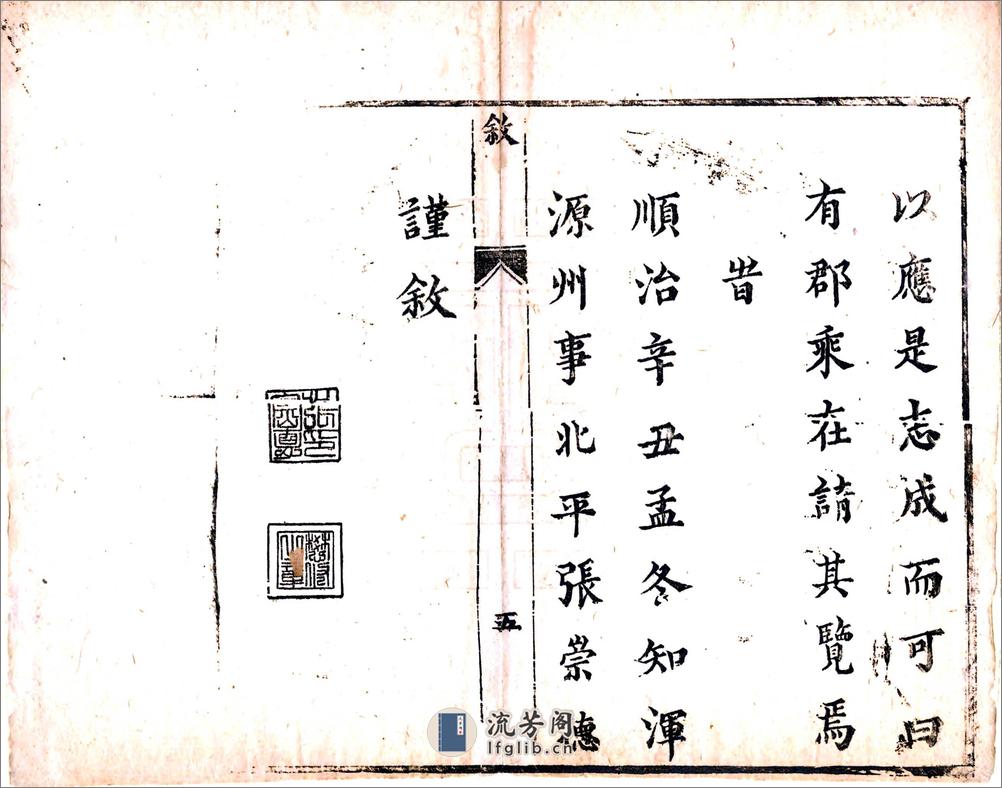 以應是志成而可曰
有郡乘在請其覽焉
旹
順治辛丑孟冬知渾
源州事北平張崇德
敘
五
謹敘
流芳阁
lfglib.cn